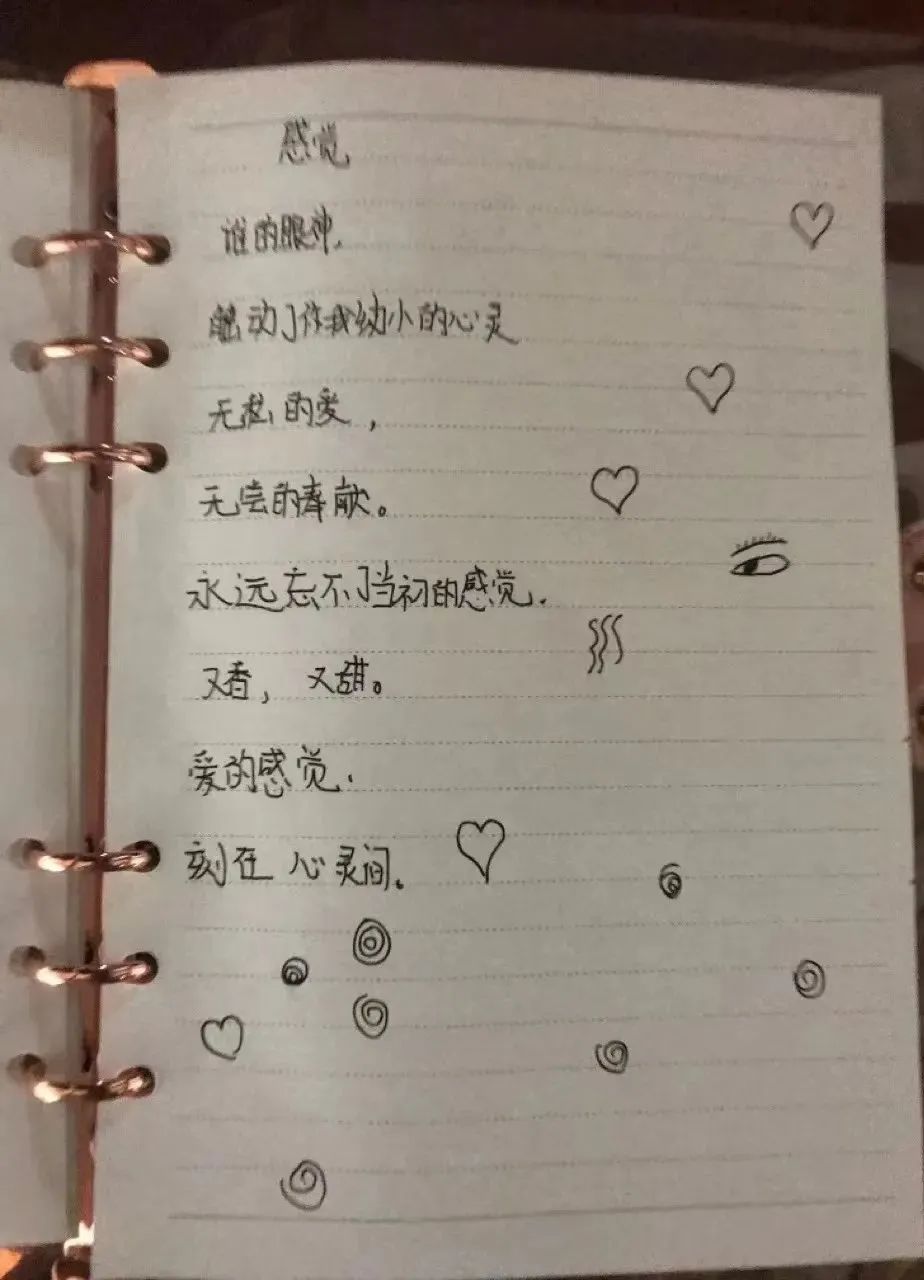 感觉
谁的眼神,
触动了你我幼小的心灵
无私的爱,
无尝的奉献。
永远忘不了当初的感觉.
又香, 又甜。
爱的感觉.
刻在心灵间。